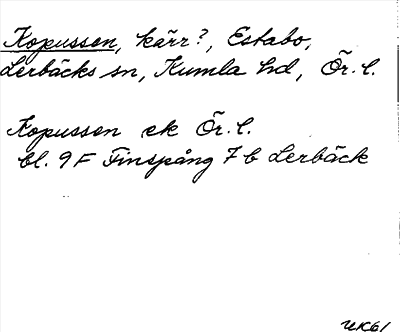 Kopussen, kärr?, Estabo,
Lerbäcks sn, Kumla hd, Ör. l.
Kopussen ek Ör. l.
bl. 9F Finspång 7 b Lerbäck
UK61